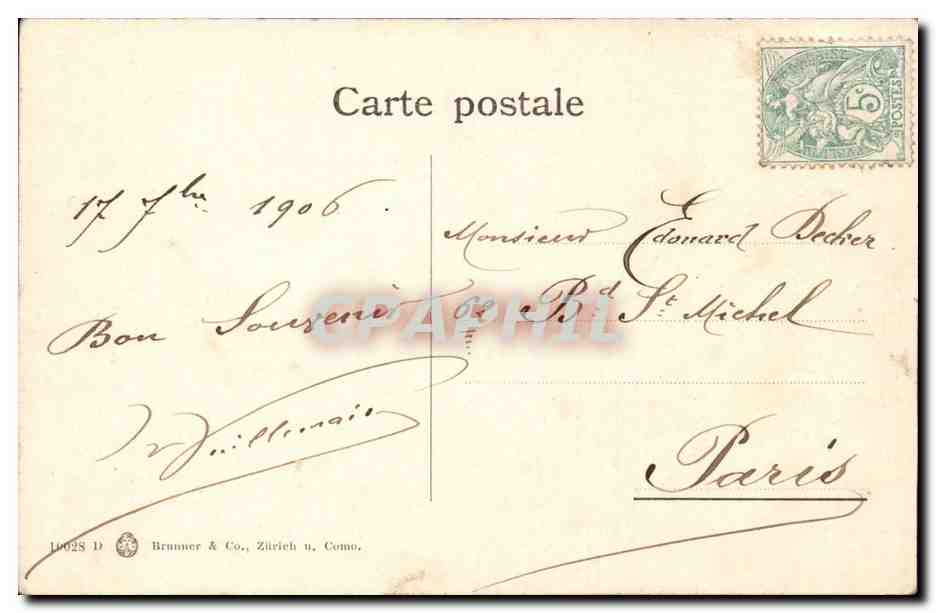 Carte postale
5c
POSTES
17 7bre 1906.
Monsieur Edouard Becker
Bd St Michel
Bon Souvenir
Paris
CPAPHIL
10028 D Brunner & Co., Zürich u. Como.